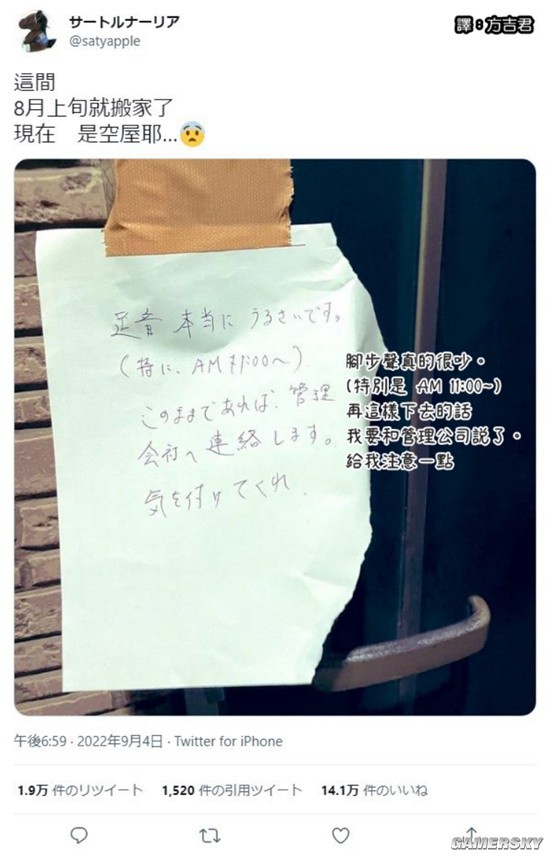 サートルナーリア
@satyapple
譯θ方吉君
這間
8月上旬就搬家了
現在 是空屋耶...😨
足音 本当に うるさいです。
(特に、AM 11:00〜)
このままであれば、管理
会社へ連絡します。
気を付けてくれ.
腳步聲真的很吵。
(特別是 AM 11:00~)
再這樣下去的話
我要和管理公司説了。
給我注意一點
午後6:59 · 2022年9月4日 · Twitter for iPhone
1.9万 件のリツイート 1,520 件の引用ツイート 14.1万 件のいいね
GAMERSKY